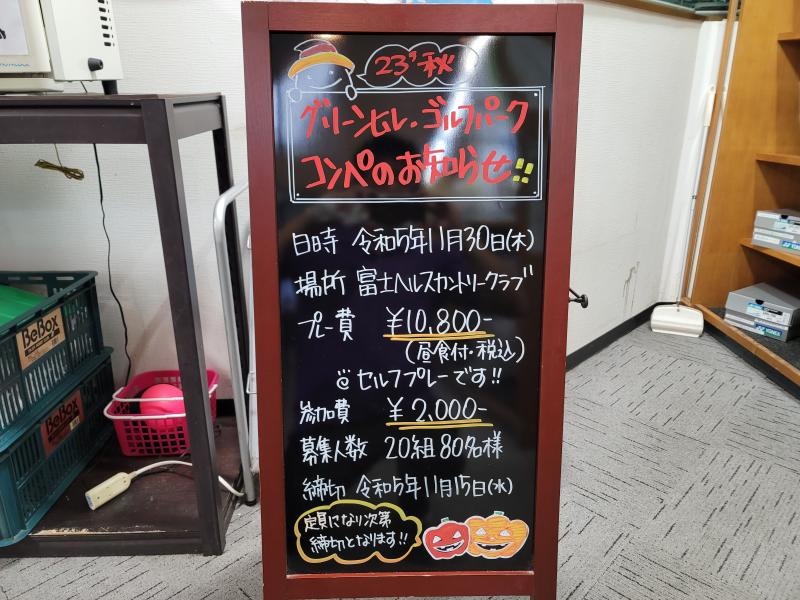 23'秋
グリーンヒル・ゴルフパーク
コンペのお知らせ!!
日時 令和5年11月30日(木)
場所 富士ヘルスカントリークラブ
プレー費 ¥10,800-
(昼食付・税込)
セルフプレーです!!
参加費 ¥2,000-
募集人数 20組80名様
締切 令和5年11月15日(水)
定員になり次第
締切となります!!
BeBox
BeBox
YONEX